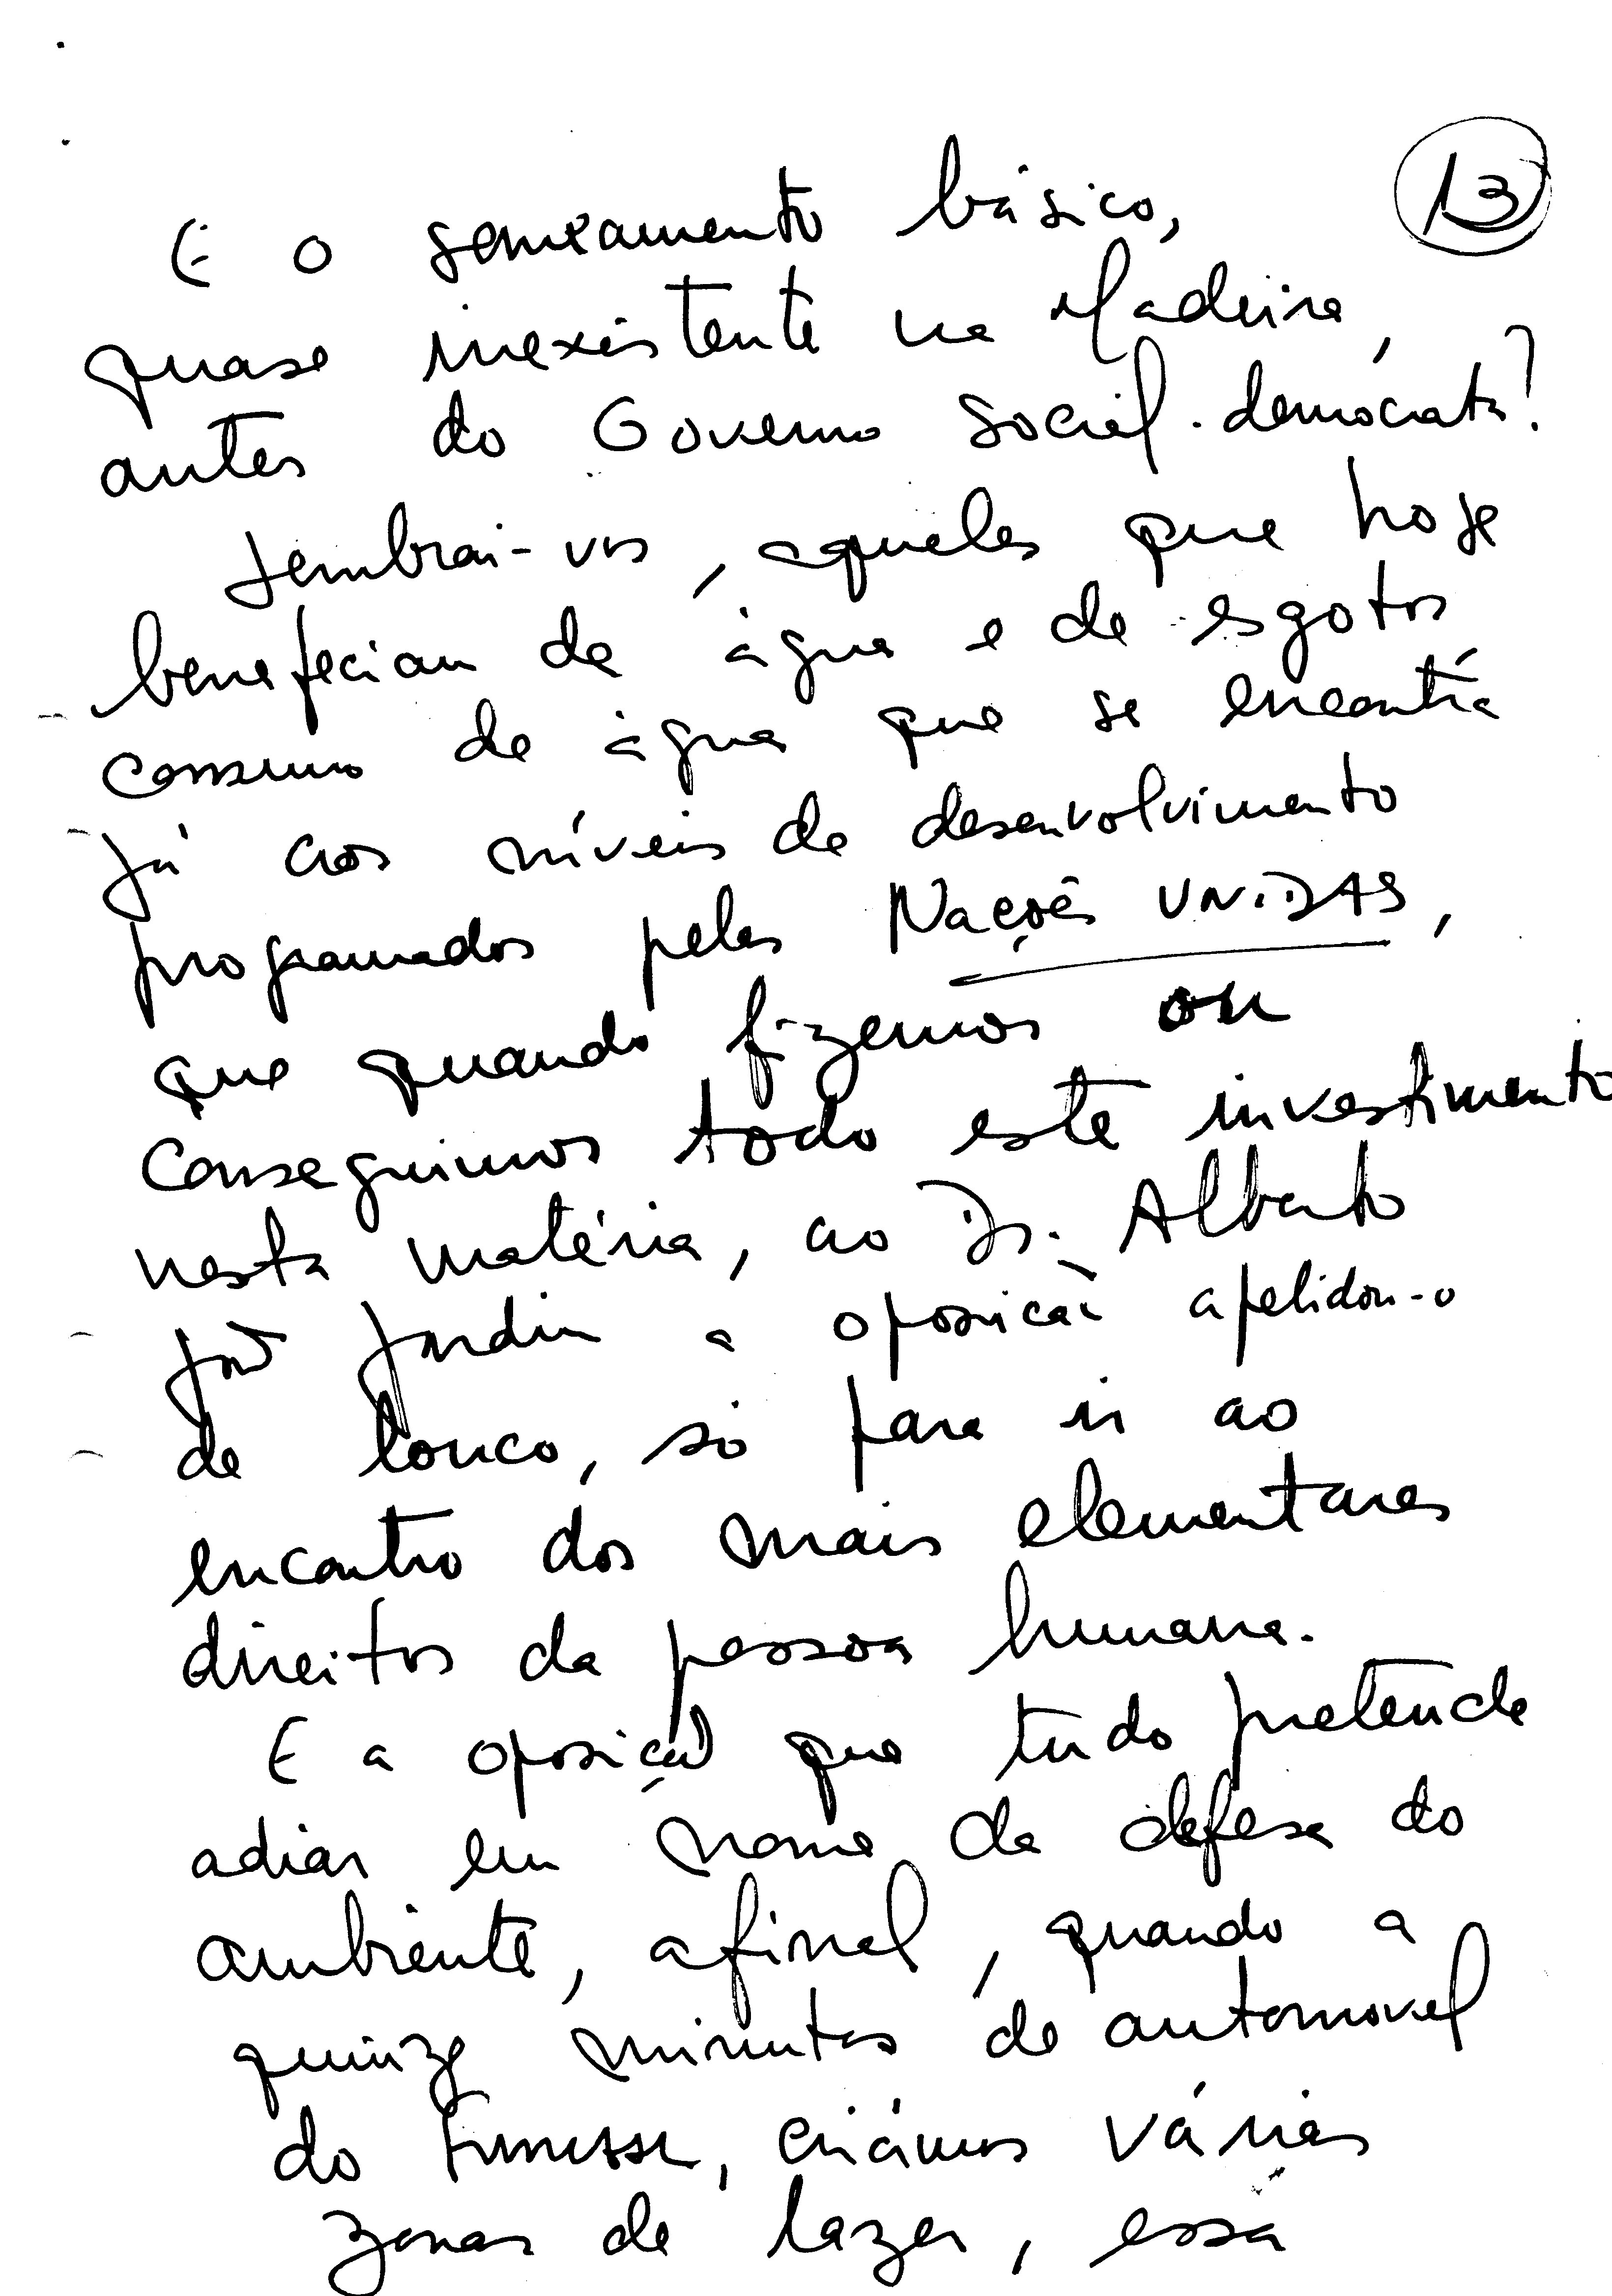 13
E o saneamento básico,
quase inexistente na Madeira,
antes do Governo social-democrata?
Lembrai-vos, aqueles que hoje
benefeciam de água e de esgotos
consumo de água que se encontra
já aos níveis de desenvolvimento
programados pelas Nações UNIDAS,
que quando fizemos ou
conseguimos todo este investimento
nesta matéria, ao Dr. Alberto
João Jardim a oposição apelidou-o
de louco, só para ir ao
encontro dos mais elementares
direitos da pessoa humana.
E a oposição que tudo pretende
adiar em nome da defesa do
ambiente, afinal, quando a
quinze minutos de automovel
do Funchal, criámos várias
zonas de lazer, essa